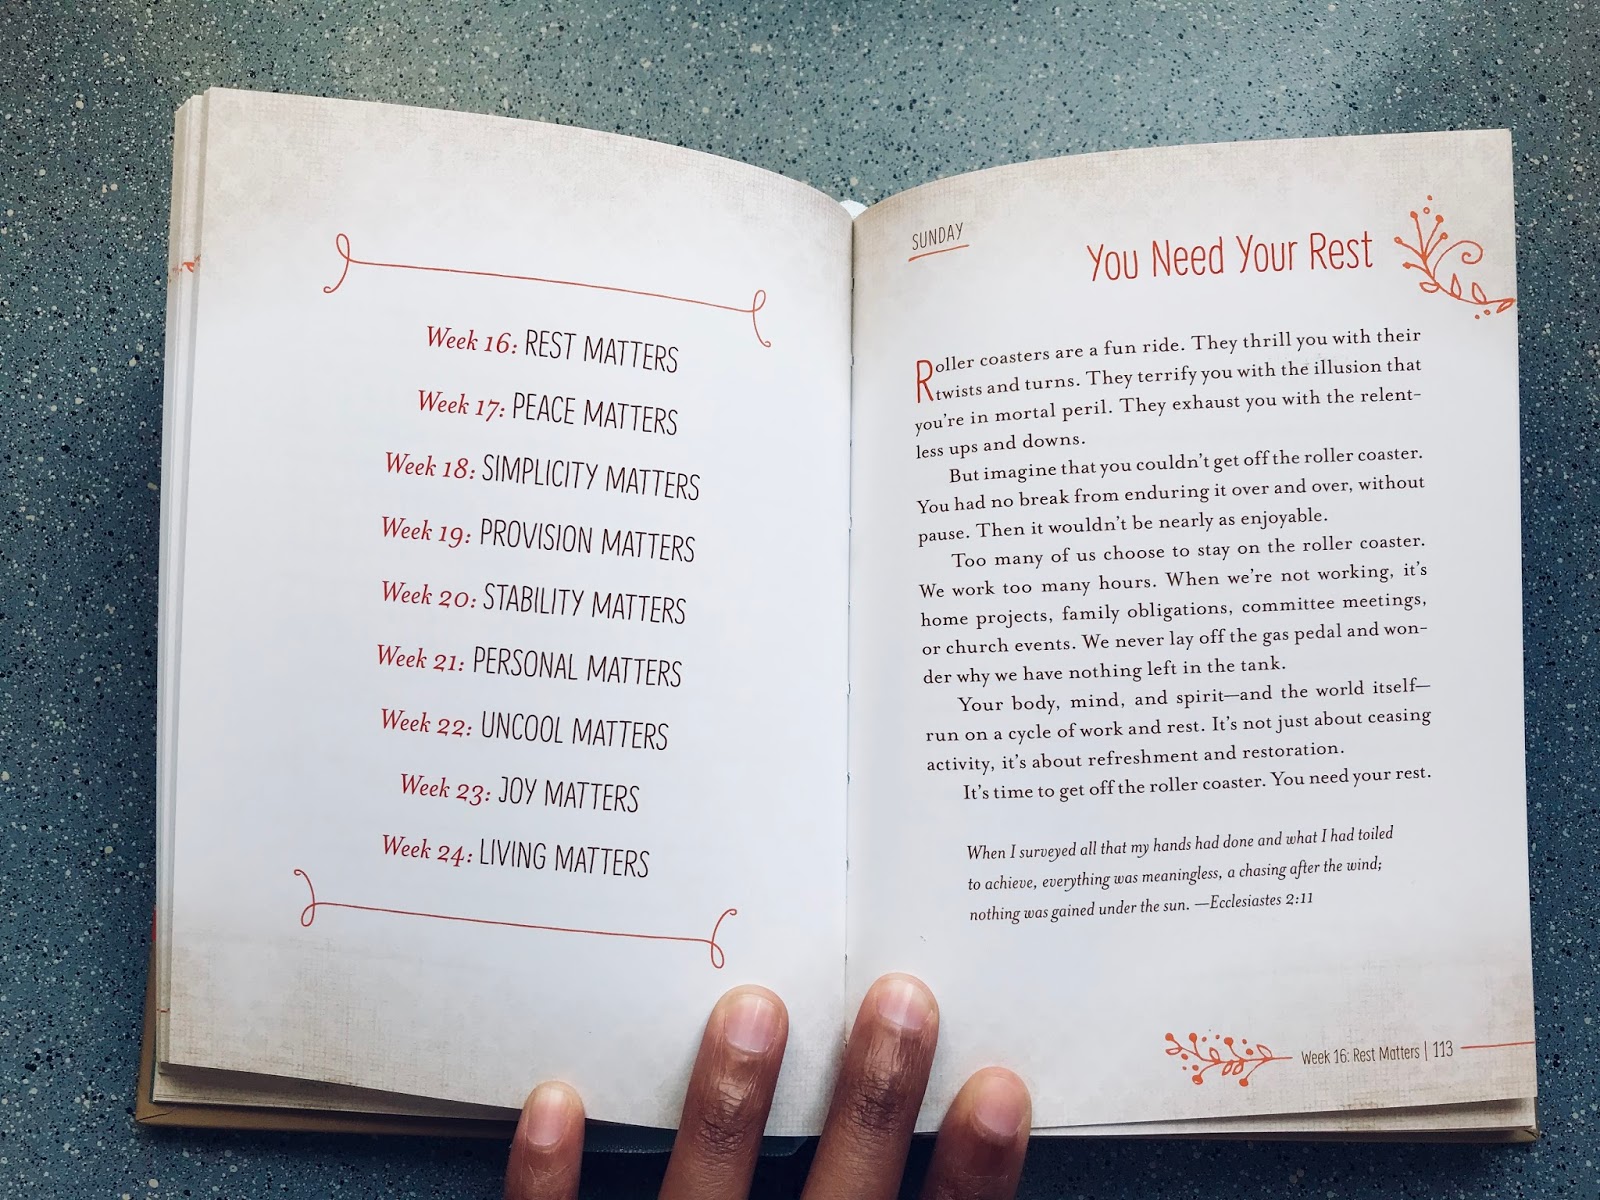 Week 16: REST MATTERS
Week 17: PEACE MATTERS
Week 18: SIMPLICITY MATTERS
Week 19: PROVISION MATTERS
Week 20: STABILITY MATTERS
Week 21: PERSONAL MATTERS
Week 22: UNCOOL MATTERS
Week 23: JOY MATTERS
Week 24: LIVING MATTERS
SUNDAY
You Need Your Rest
Roller coasters are a fun ride. They thrill you with their
twists and turns. They terrify you with the illusion that
you're in mortal peril. They exhaust you with the relent-
less ups and downs.
But imagine that you couldn't get off the roller coaster.
You had no break from enduring it over and over, without
pause. Then it wouldn't be nearly as enjoyable.
Too many of us choose to stay on the roller coaster.
We work too many hours. When we're not working, it's
home projects, family obligations, committee meetings,
or church events. We never lay off the gas pedal and won-
der why we have nothing left in the tank.
Your body, mind, and spirit—and the world itself—
run on a cycle of work and rest. It's not just about ceasing
activity, it's about refreshment and restoration.
It's time to get off the roller coaster. You need your rest.
When I surveyed all that my hands had done and what I had toiled
to achieve, everything was meaningless, a chasing after the wind;
nothing was gained under the sun. —Ecclesiastes 2:11
Week 16: Rest Matters | 113